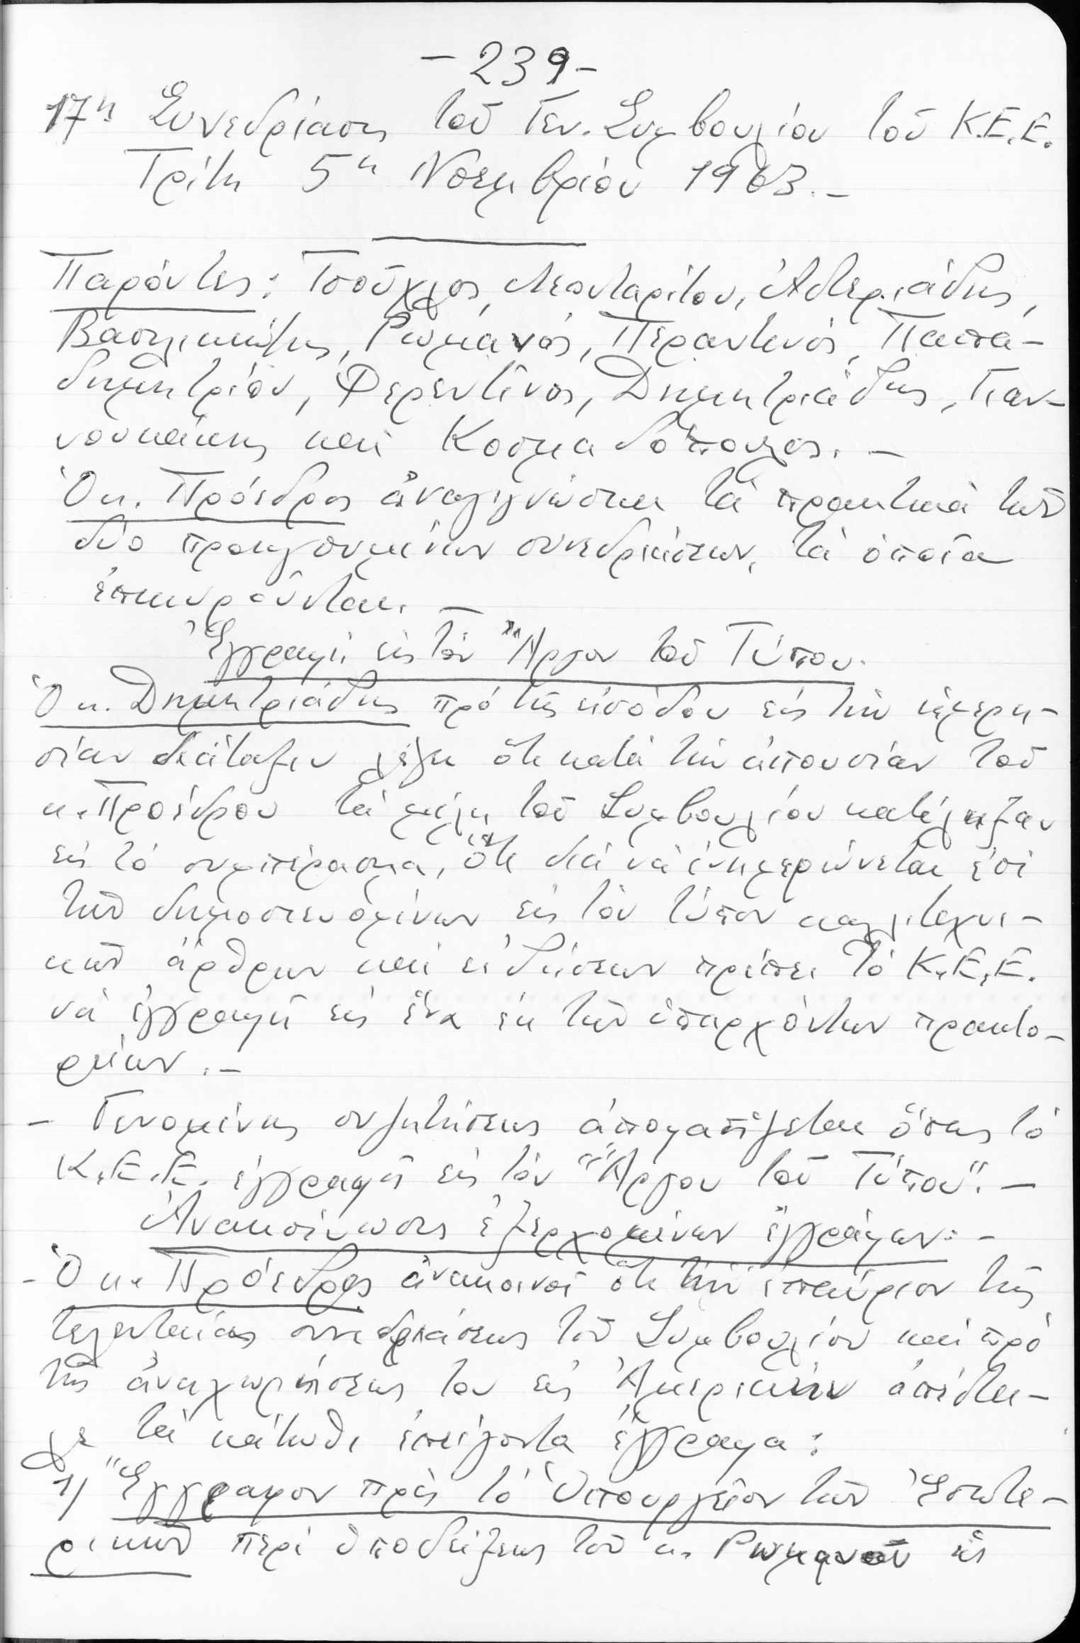 - 239 -
17η Συνεδρίασις τοῦ Γεν. Συμβουλίου τοῦ Κ.Ε.Ε.
Τρίτη 5η Νοεμβρίου 1963.-
Παρόντες: Τσοῦχλος, Λεονταρίτου, Ἀστεριάδης,
Βασιλικιώτης, Ρωμανός, Περαντινός, Παπα-
δημητρίου, Φερεντῖνος, Δημητριάδης, Γιαν-
νουκάκης καί Κοσμαδόπουλος. -
Ὁ κ. Πρόεδρος ἀναγιγνώσκει τά πρακτικά τῶν
δύο προηγουμένων συνεδριάσεων, τά ὁποῖα
ἐπικυροῦνται. -
Ἐγγραφή εἰς τόν "Ἄργον τοῦ Τύπου.
Ὁ κ. Δημητριάδης πρό τῆς εἰσόδου εἰς τήν ἡμερη-
σίαν διάταξιν λέγει ὅτι κατά τήν ἀπουσίαν τοῦ
κ. Προέδρου τά μέλη τοῦ Συμβουλίου κατέληξαν
εἰς τό συμπέρασμα, ὅτι διά νά ἐνημερώνεται ἐπί
τῶν δημοσιευομένων εἰς τόν τύπον καλλιτεχνι-
κῶν ἄρθρων καί εἰδήσεων πρέπει τό Κ.Ε.Ε.
νά ἐγγραφῆ εἰς ἕνα ἐκ τῶν ὑπαρχόντων πρακτο-
ρείων.-
- Γενομένης συζητήσεως ἀποφασίζεται ὅπως τό
Κ.Ε.Ε. ἐγγραφῆ εἰς τόν "Ἄργον τοῦ Τύπου". -
Ἀνακοίνωσις ἐξερχομένων ἐγγράφων: -
- Ὁ κ. Πρόεδρος ἀνακοινοῖ ὅτι τήν ἐπαύριον τῆς
τελευταίας συνεδριάσεως τοῦ Συμβουλίου καί πρό
τῆς ἀναχωρήσεώς του εἰς Ἀμερικήν ἀπέστει-
λε τά κάτωθι ἐπείγοντα ἔγγραφα:
1) Ἔγγραφον πρός τό Ὑπουργεῖον τῶν Ἐσωτε-
ρικῶν περί ὑποδείξεως τοῦ κ. Ρωμανοῦ εἰς